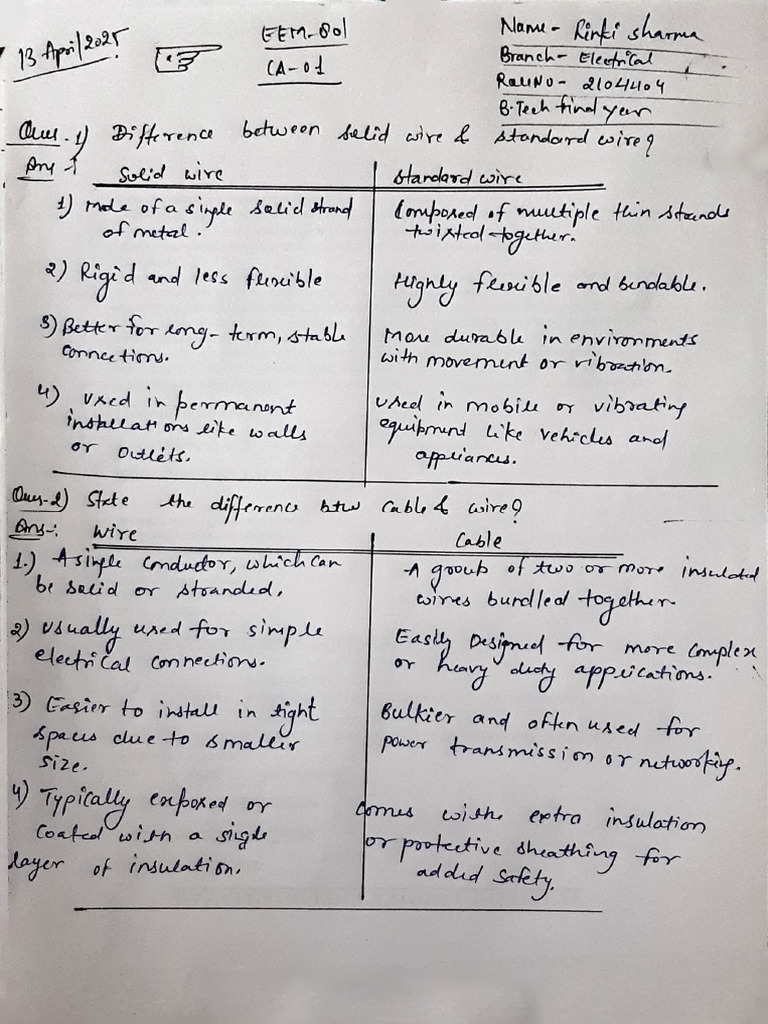 13 April/2025
EEM-801
CA-01
Name - Rinki Sharma
Branch - Electrical
Roll No - 2104404
B.Tech final year
Ques. 1) Difference between solid wire & standard wire?
Ans -1
Solid wire
Standard wire
1) Made of a single solid strand
of metal.
Composed of multiple thin strands
twisted together.
2) Rigid and less flexible
Highly flexible and bendable.
3) Better for long-term, stable
connections.
More durable in environments
with movement or vibration.
4) used in permanent
installations like walls
or outlets.
used in mobile or vibrating
equipment like vehicles and
appliances.
Ques-2) State the difference btw Cable & wire?
Ans-:
Wire
Cable
1.) A single conductor, which can
be solid or stranded.
A group of two or more insulated
wires bundled together.
2) usually used for simple
electrical connections.
Easily Designed for more complex
or heavy duty applications.
3) Easier to install in tight
spaces due to smaller
size.
Bulkier and often used for
power transmission or networking.
4) Typically exposed or
coated with a single
layer of insulation.
Comes withe extra insulation
or protective sheathing for
added safety.